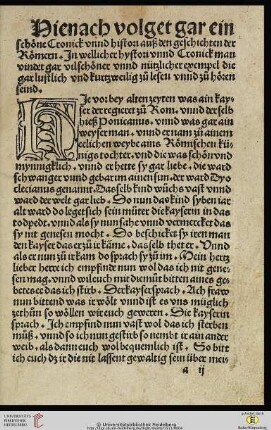 Hienach volget gar ein
schöne Cronick vnnd histori außden geschichten der
Römern. In wellicher hystori vnnd Cronick man
vindet gar vil schöner vnnd nutzlicher exempel die
gar lustlich vnd kurtzweilig zů lesen vnnd zů hören
seind.
Je vor bey alten zeyten was ain kay-
ser der regieret zů Rom. vnnd der selb
hieß Poncianus. vnnd was gar ain
weyser man. vnnd er nam zů ainem
eelichen weybe ains Römischen kü-
nigs tochter. vnd die was schön vnd
mynnigklich. vnnd er hette sy gar liebe. die ward
schwanger vnnd gebar im ainen sun. der ward Dy-
oclecianus genannt. Das selb kind wůchs vast vnnd
ward der welt gar lieb. Do nun das kind syben iar
alt ward do leget sich sein můtter die kayserin in das
todpedt. vnnd als sy nun sahe vnnd vermercket das
sy nit genesen mocht. Do beschicket sy iren man
den kayser das er zů ir käme. das selb thet er. Vnnd
als er nun zů ir kam do sprach sy zů im. Mein hertz
lieber herre ich empfind nun wol das ich nit gene-
sen mag. vnnd wil euch mit diemůt bitten aines ge-
betes ee das ich stirb. Der kayser sprach. Ach fraw
nun bittend was ir wölt vnnd ist es vns müglich
zethůn so wöllen wir euch geweren. Die kayserin
sprach. Ich empfind nun vast wol das ich sterben
můß. vnnd so ich nun gestirb so nement ir ain ander
weib. als dann euch wol bequemlich ist. So bitt
ich euch dz ir die nit lassent gewaltig sein über mein
a ij
UNIVERSITÄTS-
BIBLIOTHEK
HEIDELBERG
© Universitätsbibliothek Heidelberg